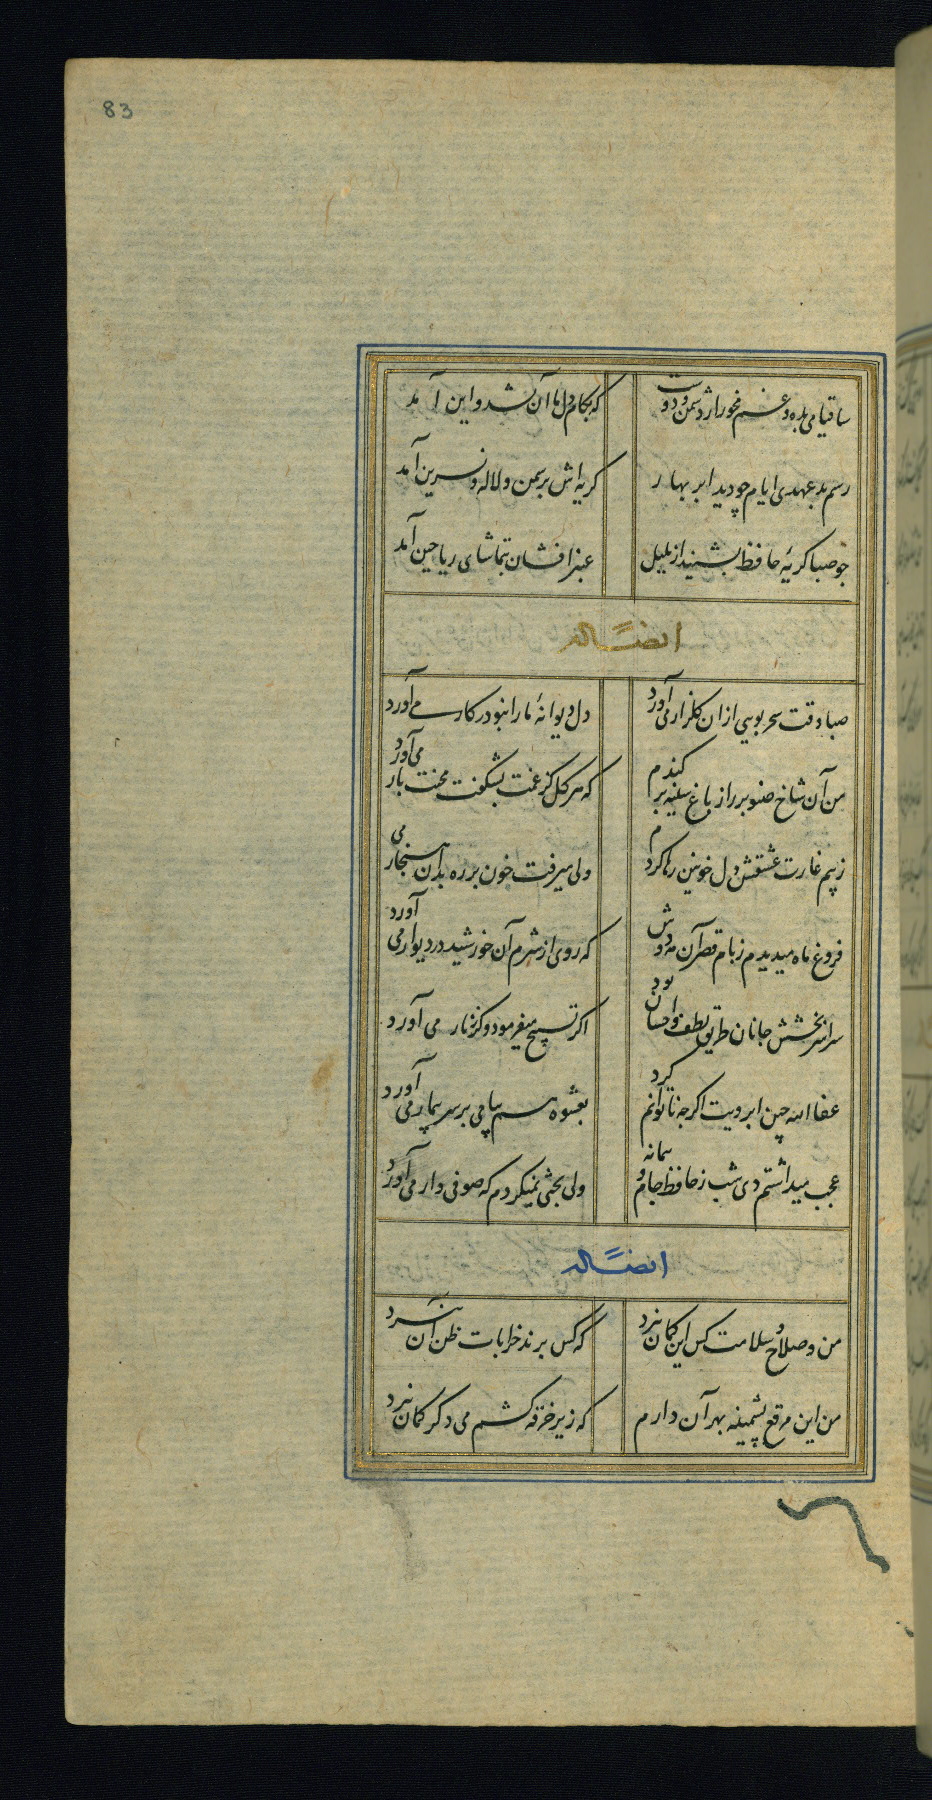 83
ساقیا می بده و غم مخور از دشمن و دوست
که بکام دل ما آن بشد و این آمد
رسم بد عهدی ایام چو دید ابر بهار
کریه اش بر سمن و لاله و نسرین آمد
چو صبا کریهٔ حافظ بشنید از بلبل
عنبر افشان بتماشای ریاحین آمد
ایضاً له
صبا وقت سحر بویی از ان کلزار می آورد
دل دیوانهٔ ما را بنو در کار می آورد
من آن شاخ صنوبر را ز باغ سینه بر کندم
که هر کل کز غمت بشکفت محنت بار می آورد
ز بیم غارت عشقش دل خونین رها کردم
ولی میرفت خون بر ره بدان هنجار می آورد
فروغ ماه میدیدم ز بام قصر آن مه وش
که روی از شرم آن خورشید در دیوار می آورد
سراسر بخشش جانان طریق لطف و احسان بود
اکر تسبیح میفرمود و کر زنار می آورد
عفا الله چین ابرویت اکرچه ناتوانم کرد
بعشوه هم پیامی بر سر بیمار می آورد
عجب میداشتم دی شب ز حافظ جام و پیمانه
ولی بحثی نمیکردم که صوفی وار می آورد
ایضاً له
من و صلاح و سلامت کس این کمان نبرد
که کس برند خرابات ظن آن نبرد
من این مرقع پشمینه بهر آن دارم
که زیر خرقه کشم می دکر کمان نبرد